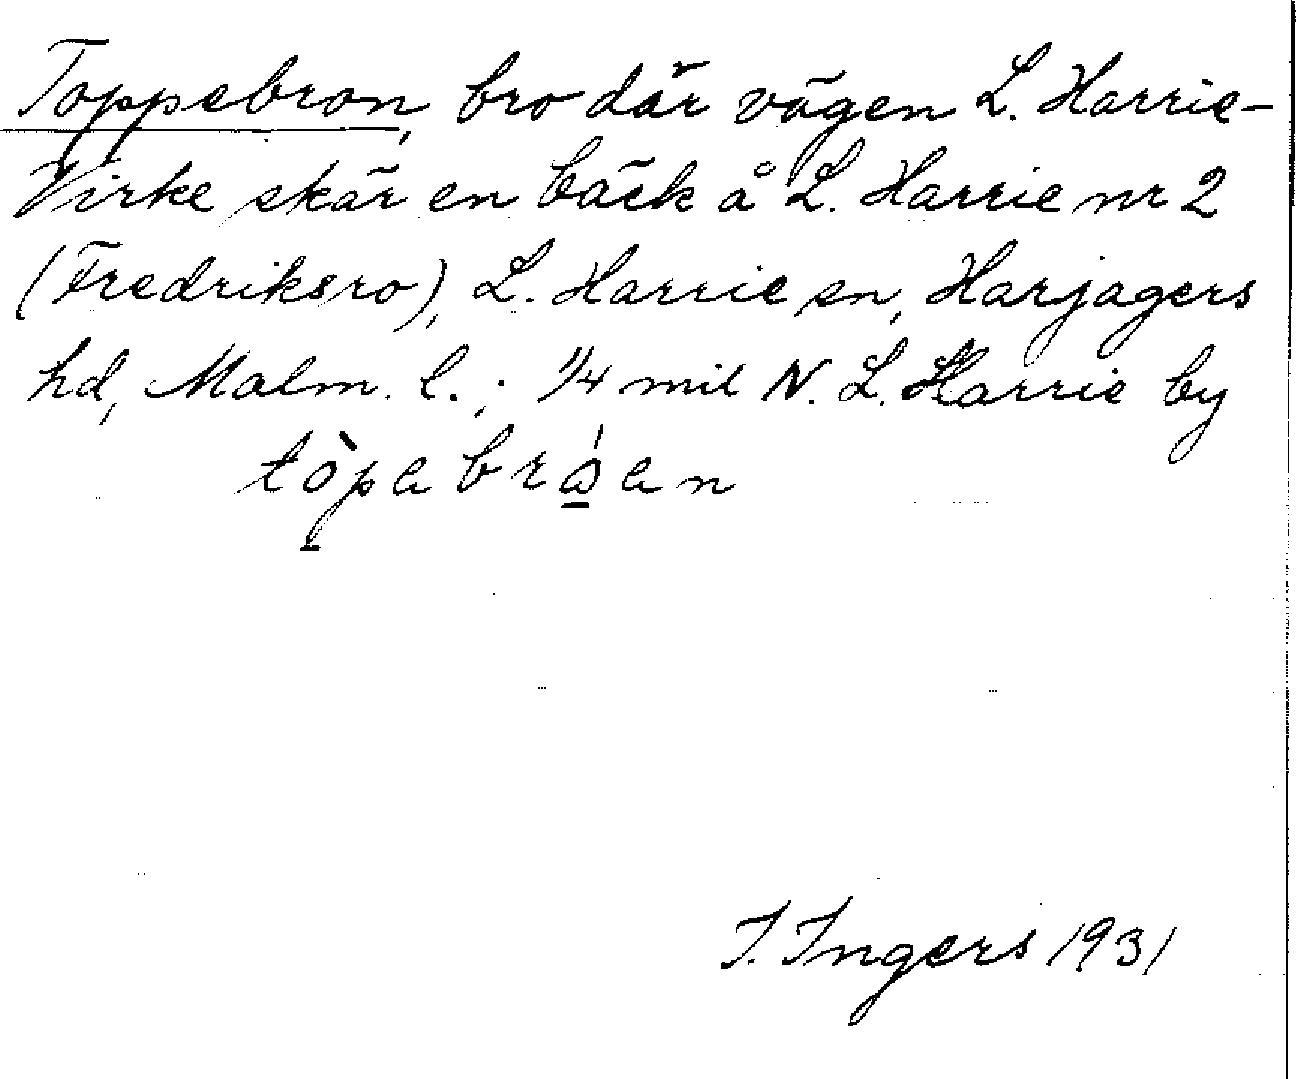 Toppebron, bro där vägen L. Harrie-
Virke skär en bäck å L. Harrie nr 2
(Fredriksro), L. Harrie sn, Harjagers
hd, Malm. l.; 1/4 mil N. L. Harrie by
tòpebråen
I. Ingers 1931